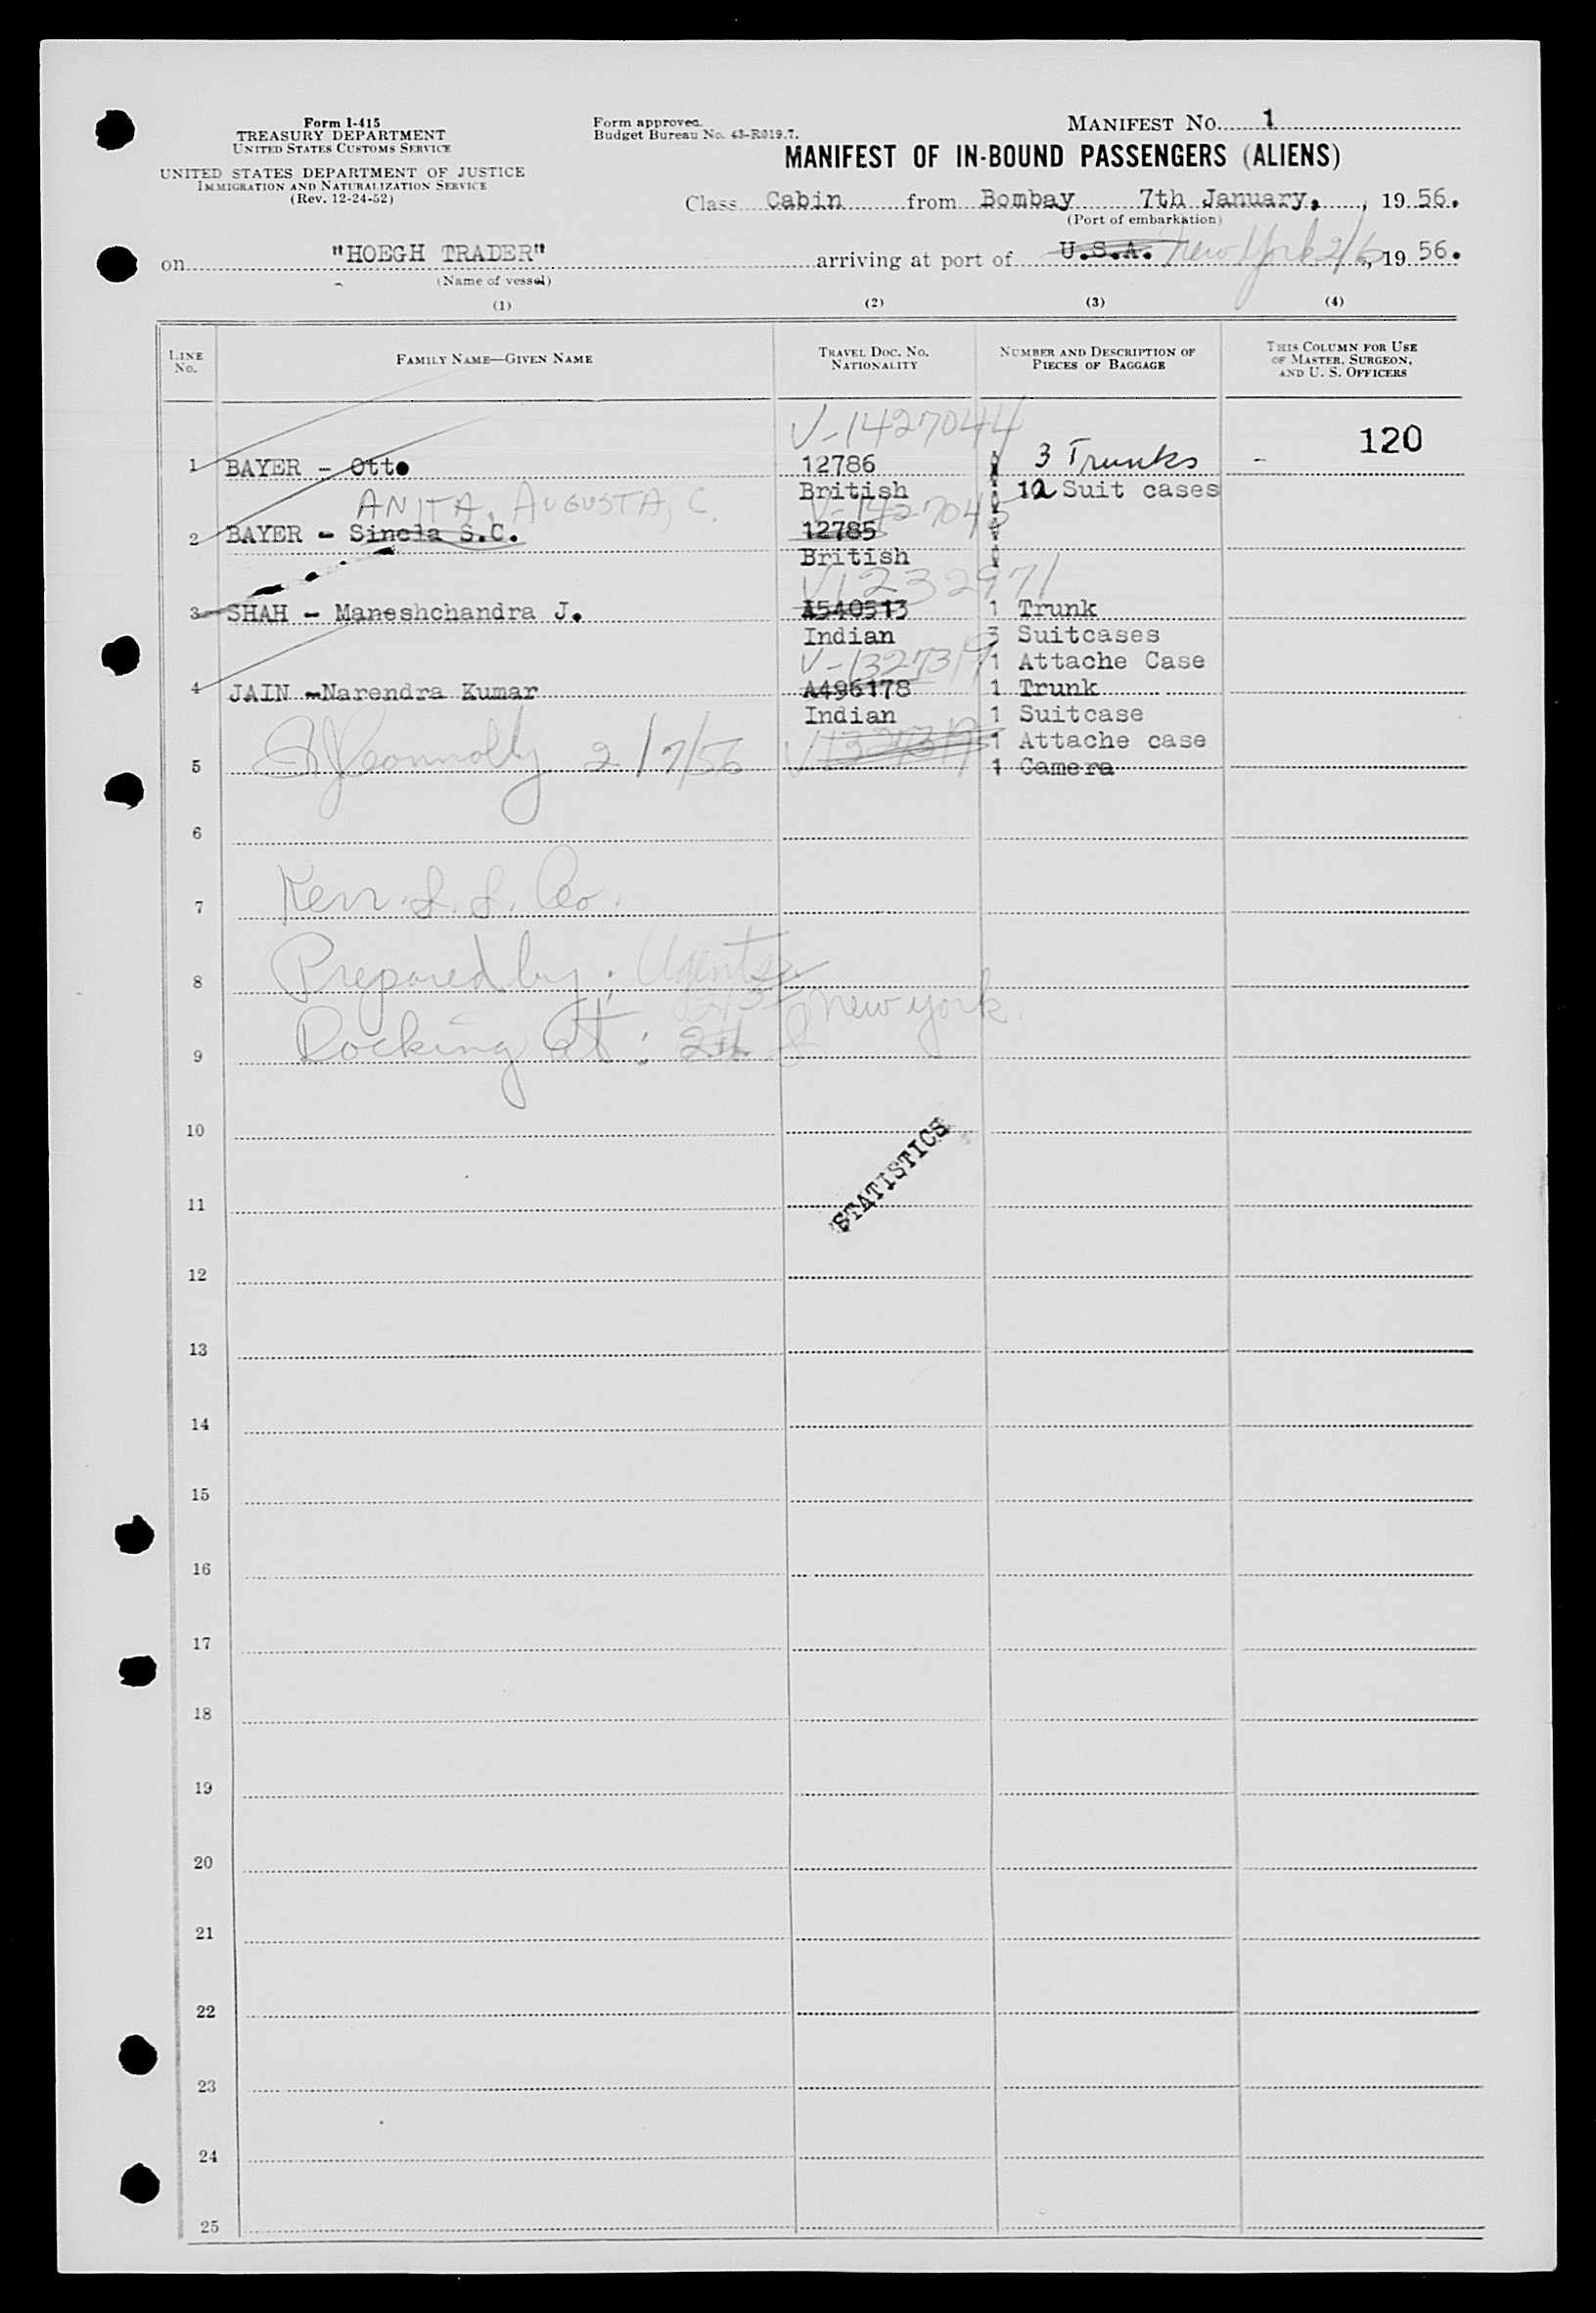 Form I-415
TREASURY DEPARTMENT
UNITED STATES CUSTOMS SERVICE
UNITED STATES DEPARTMENT OF JUSTICE
IMMIGRATION AND NATURALIZATION SERVICE
(Rev. 12-24-52)
Form approved.
Budget Bureau No. 43-R019.7.
MANIFEST NO. 1
MANIFEST OF IN-BOUND PASSENGERS (ALIENS)
Class Cabin from Bombay 7th January, , 19 56.
(Port of embarkation)
on "HOEGH TRADER" arriving at port of U.S.A. New York 2/6, 19 56.
(Name of vessel)
(1) (2) (3) (4)
LINE NO.
FAMILY NAME—GIVEN NAME
TRAVEL DOC. NO.
NATIONALITY
NUMBER AND DESCRIPTION OF
PIECES OF BAGGAGE
THIS COLUMN FOR USE
OF MASTER, SURGEON,
AND U. S. OFFICERS
V-1427044
120
1 BAYER - Otto 12786 3 Trunks
British 12 Suit cases
ANITA, AUGUSTA, C. V-1427045
2 BAYER - Sincla S.C. 12785
British
V1232971
3 SHAH - Maneshchandra J. A540513 1 Trunk
Indian 3 Suitcases
V-1327317 1 Attache Case
4 JAIN -Narendra Kumar A496178 1 Trunk
Indian 1 Suitcase
1 Attache case
5 2/7/56 1 Camera
6
7 Kerr S. S. Co.
8 Prepared by: Agents
New York
9 Docking At:
10
STATISTICS
11
12
13
14
15
16
17
18
19
20
21
22
23
24
25